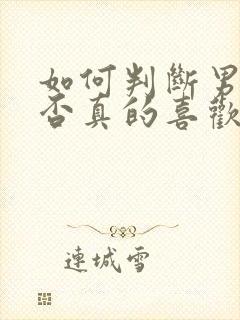 如何判斷男
否真的喜歡
連城雪